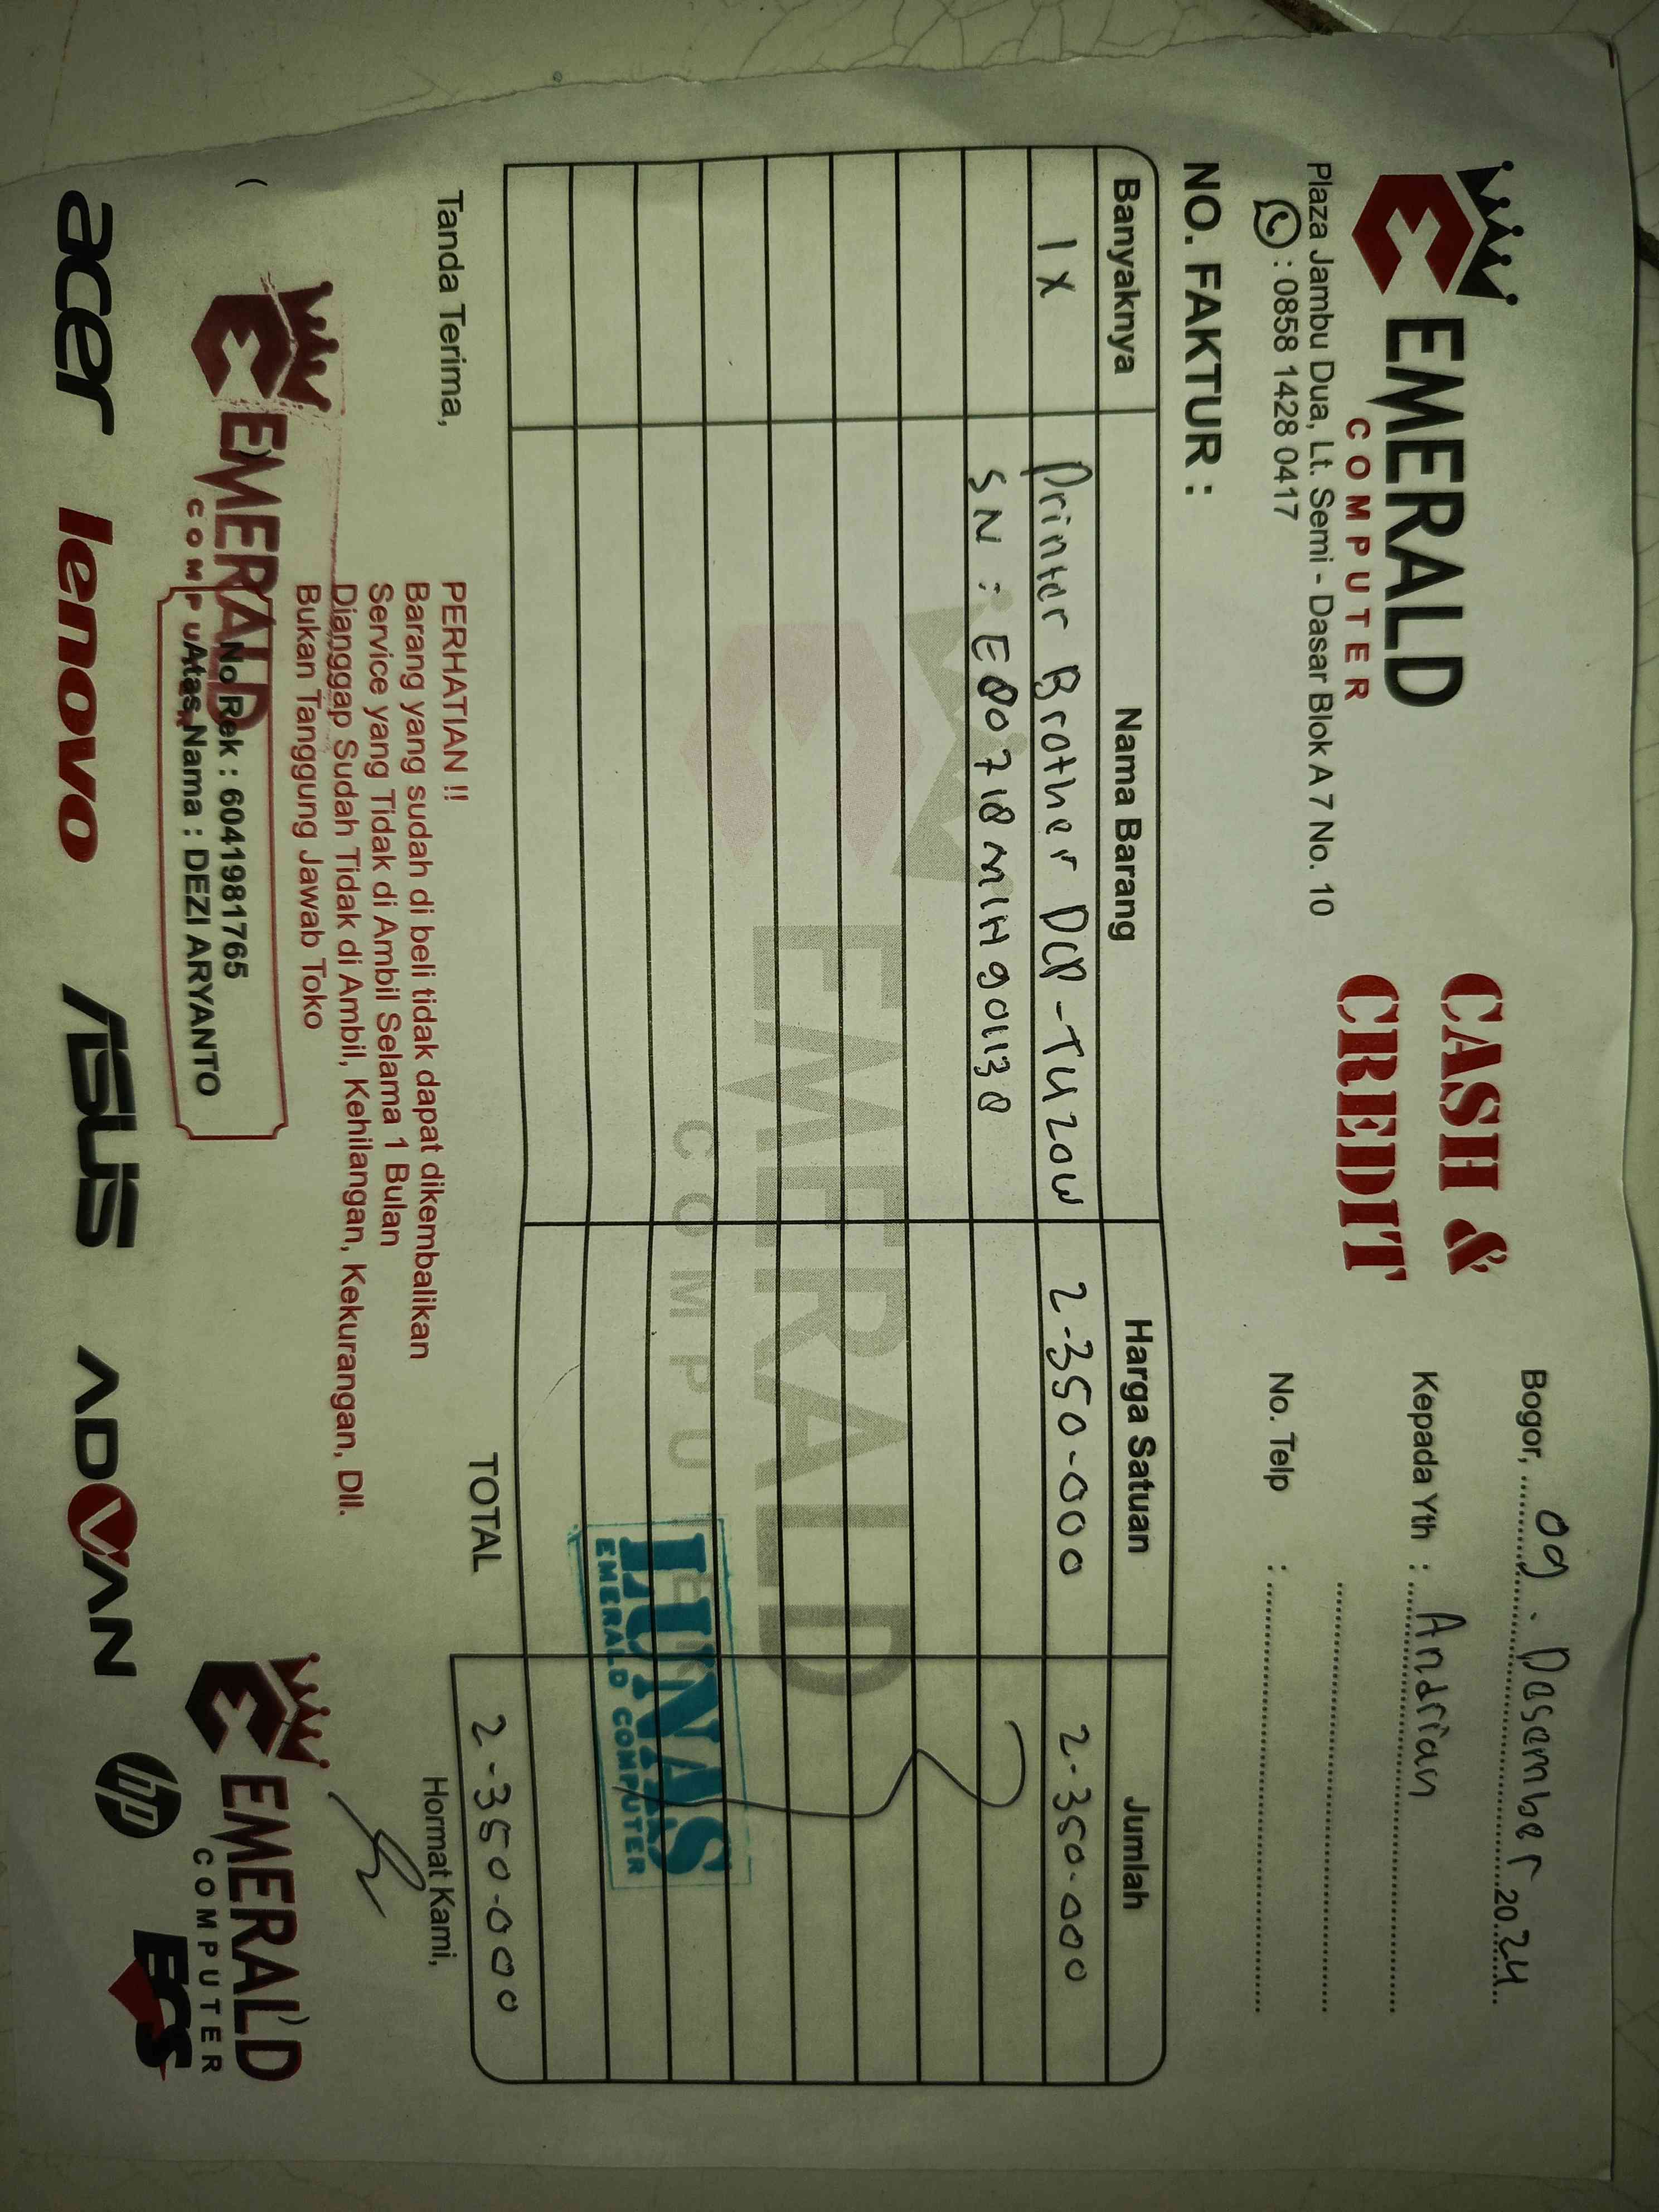 EMERALD
COMPUTER
CASH &
CREDIT
Plaza Jambu Dua, Lt. Semi - Dasar Blok A 7 No. 10
: 0858 1428 0417
Bogor, 09 . Desember 2024
Kepada Yth : Andrian
No. Telp :
NO. FAKTUR :
Banyaknya Nama Barang Harga Satuan Jumlah
1 x Printer Brother DCP-T420W 2.350.000 2.350.000
SN : E80718M1H901138
EMERALD
COMPU
LUNAS
EMERALD COMPUTER
TOTAL 2.350.000
Tanda Terima,
PERHATIAN !!
Barang yang sudah di beli tidak dapat dikembalikan
Service yang Tidak di Ambil Selama 1 Bulan
Dianggap Sudah Tidak di Ambil, Kehilangan, Kekurangan, Dll.
Bukan Tanggung Jawab Toko
Hormat Kami,
EMERALD
COMPU
No Rek : 6041981765
Atas Nama : DEZI ARYANTO
EMERALD
COMPUTER
acer lenovo ASUS ADVAN hp ECS